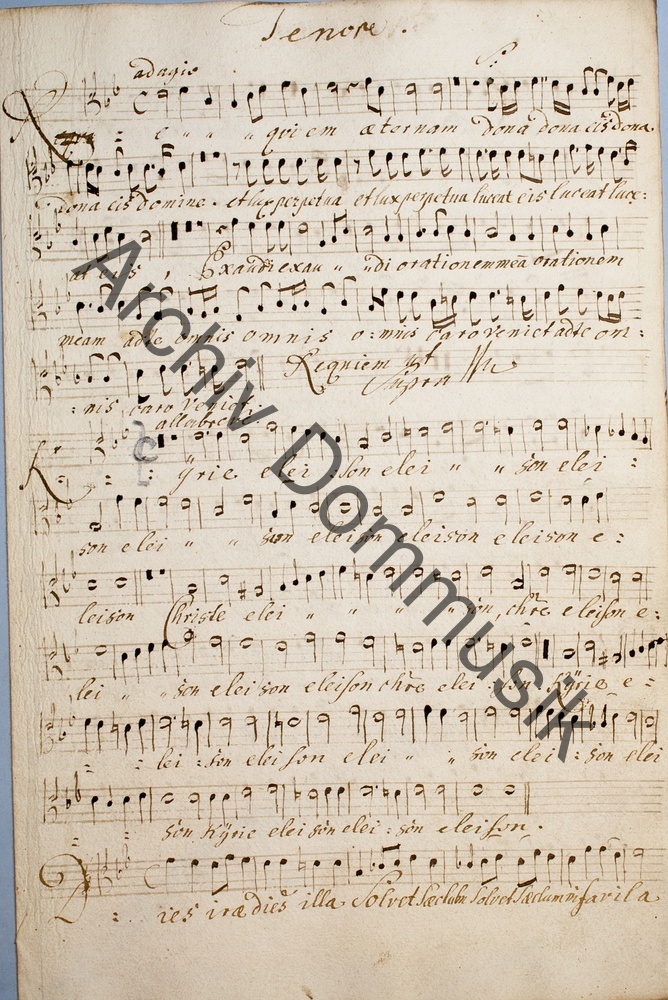 Tenore.
adagio
R e " " " quiem æternam dona dona eis dona
dona eis domine. et lux perpetua et lux perpetua luceat eis luceat luce:
at eis, Exaudi exau " " di orationem meã orationem
meam adte omnis omnis o:mnis caro veniet adte om:
:nis caro veniet. Requiem ut supra
allabreve
Kÿrie elei :son elei " " son elei :
son elei " " son eleison eleison eleison e:
leison Christe elei " " " " son, chr̃e eleison e:
lei " " son eleison eleison chr̃e elei :son Kÿrie e =
: : lei :son eleison elei " " son elei :son elei
: : son Kÿrie eleison elei :son eleison.
Dies iræ dies illa Solvet Sæclum solvet sæclum in favila
Archiv Dommusik